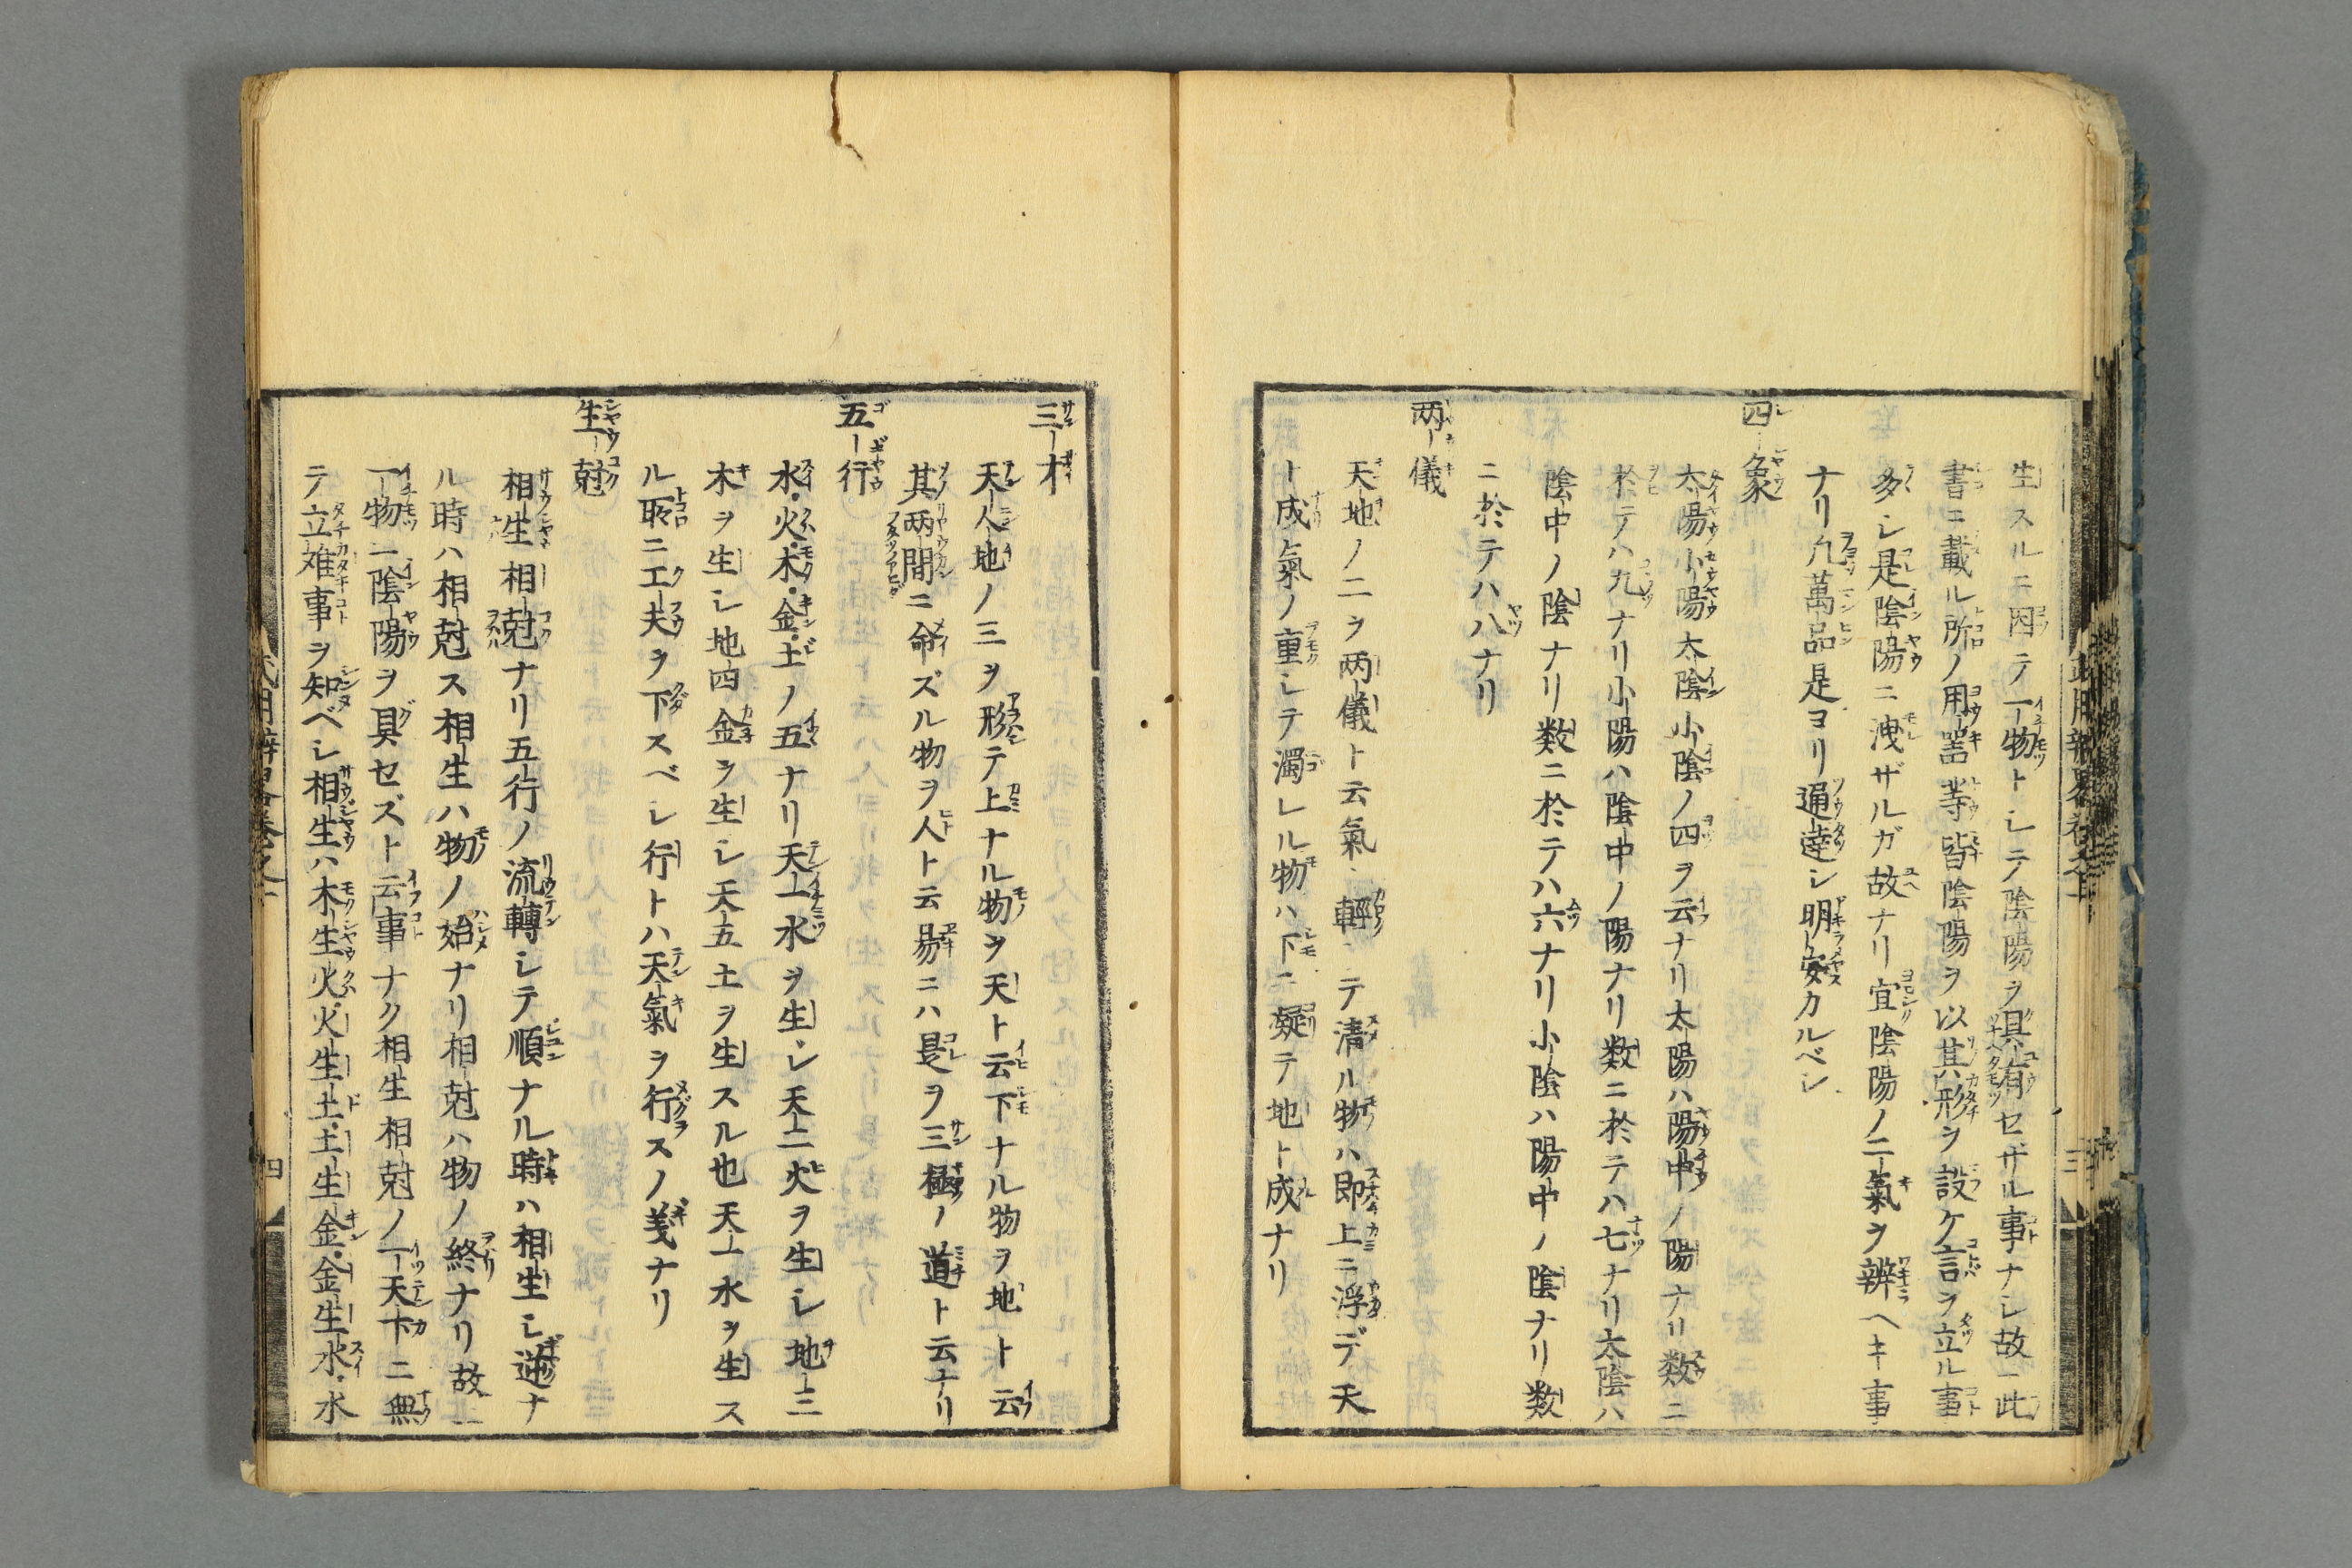 生スルニ因テ一物トシテ陰陽ヲ具有セザル事ナシ故ニ此
書ニ載ル所ノ用噐等皆陰陽ヲ以其形ヲ設ケ言ヲ立ル事
多シ是陰陽ニ洩ザルガ故ナリ宜陰陽ノ二氣ヲ辨ヘキ事
ナリ凡萬品是ヨリ通達シ明安カルベシ
四象
太陽小陽太陰小陰ノ四ヲ云ナリ太陽ハ陽中ノ陽ナリ数ニ
於テハ九ナリ小陽ハ陰中ノ陽ナリ数ニ於テハ七ナリ太陰ハ
陰中ノ陰ナリ数ニ於テハ六ナリ小陰ハ陽中ノ陰ナリ数
ニ於テハ八ナリ
両儀
天地ノ二ヲ両儀ト云氣輕テ清ル物ハ即上ニ浮デ天
ト成氣ノ重シテ濁レル物ハ下ニ凝テ地ト成ナリ
三才
天人地ノ三ヲ形テ上ナル物ヲ天ト云下ナル物ヲ地ト云
其両間ニ命ズル物ヲ人ト云易ニハ是ヲ三極ノ道ト云ナリ
五行
水火木金土ノ五ナリ天一水ヲ生シ天二火ヲ生シ地三
木ヲ生シ地四金ヲ生シ天五土ヲ生スル也天一水ヲ生ス
ル所ニ工夫ヲ下スベシ行トハ天氣ヲ行スノ義ナリ
生尅
相生相尅ナリ五行ノ流轉シテ順ナル時ハ相生シ逆ナ
ル時ハ相尅ス相生ハ物ノ始ナリ相尅ハ物ノ終ナリ故ニ
一物ニ陰陽ヲ具セズト云事ナク相生相尅ノ一天下ニ無
テ立难事ヲ知ベシ相生ハ木生火火生土土生金金生水水
四